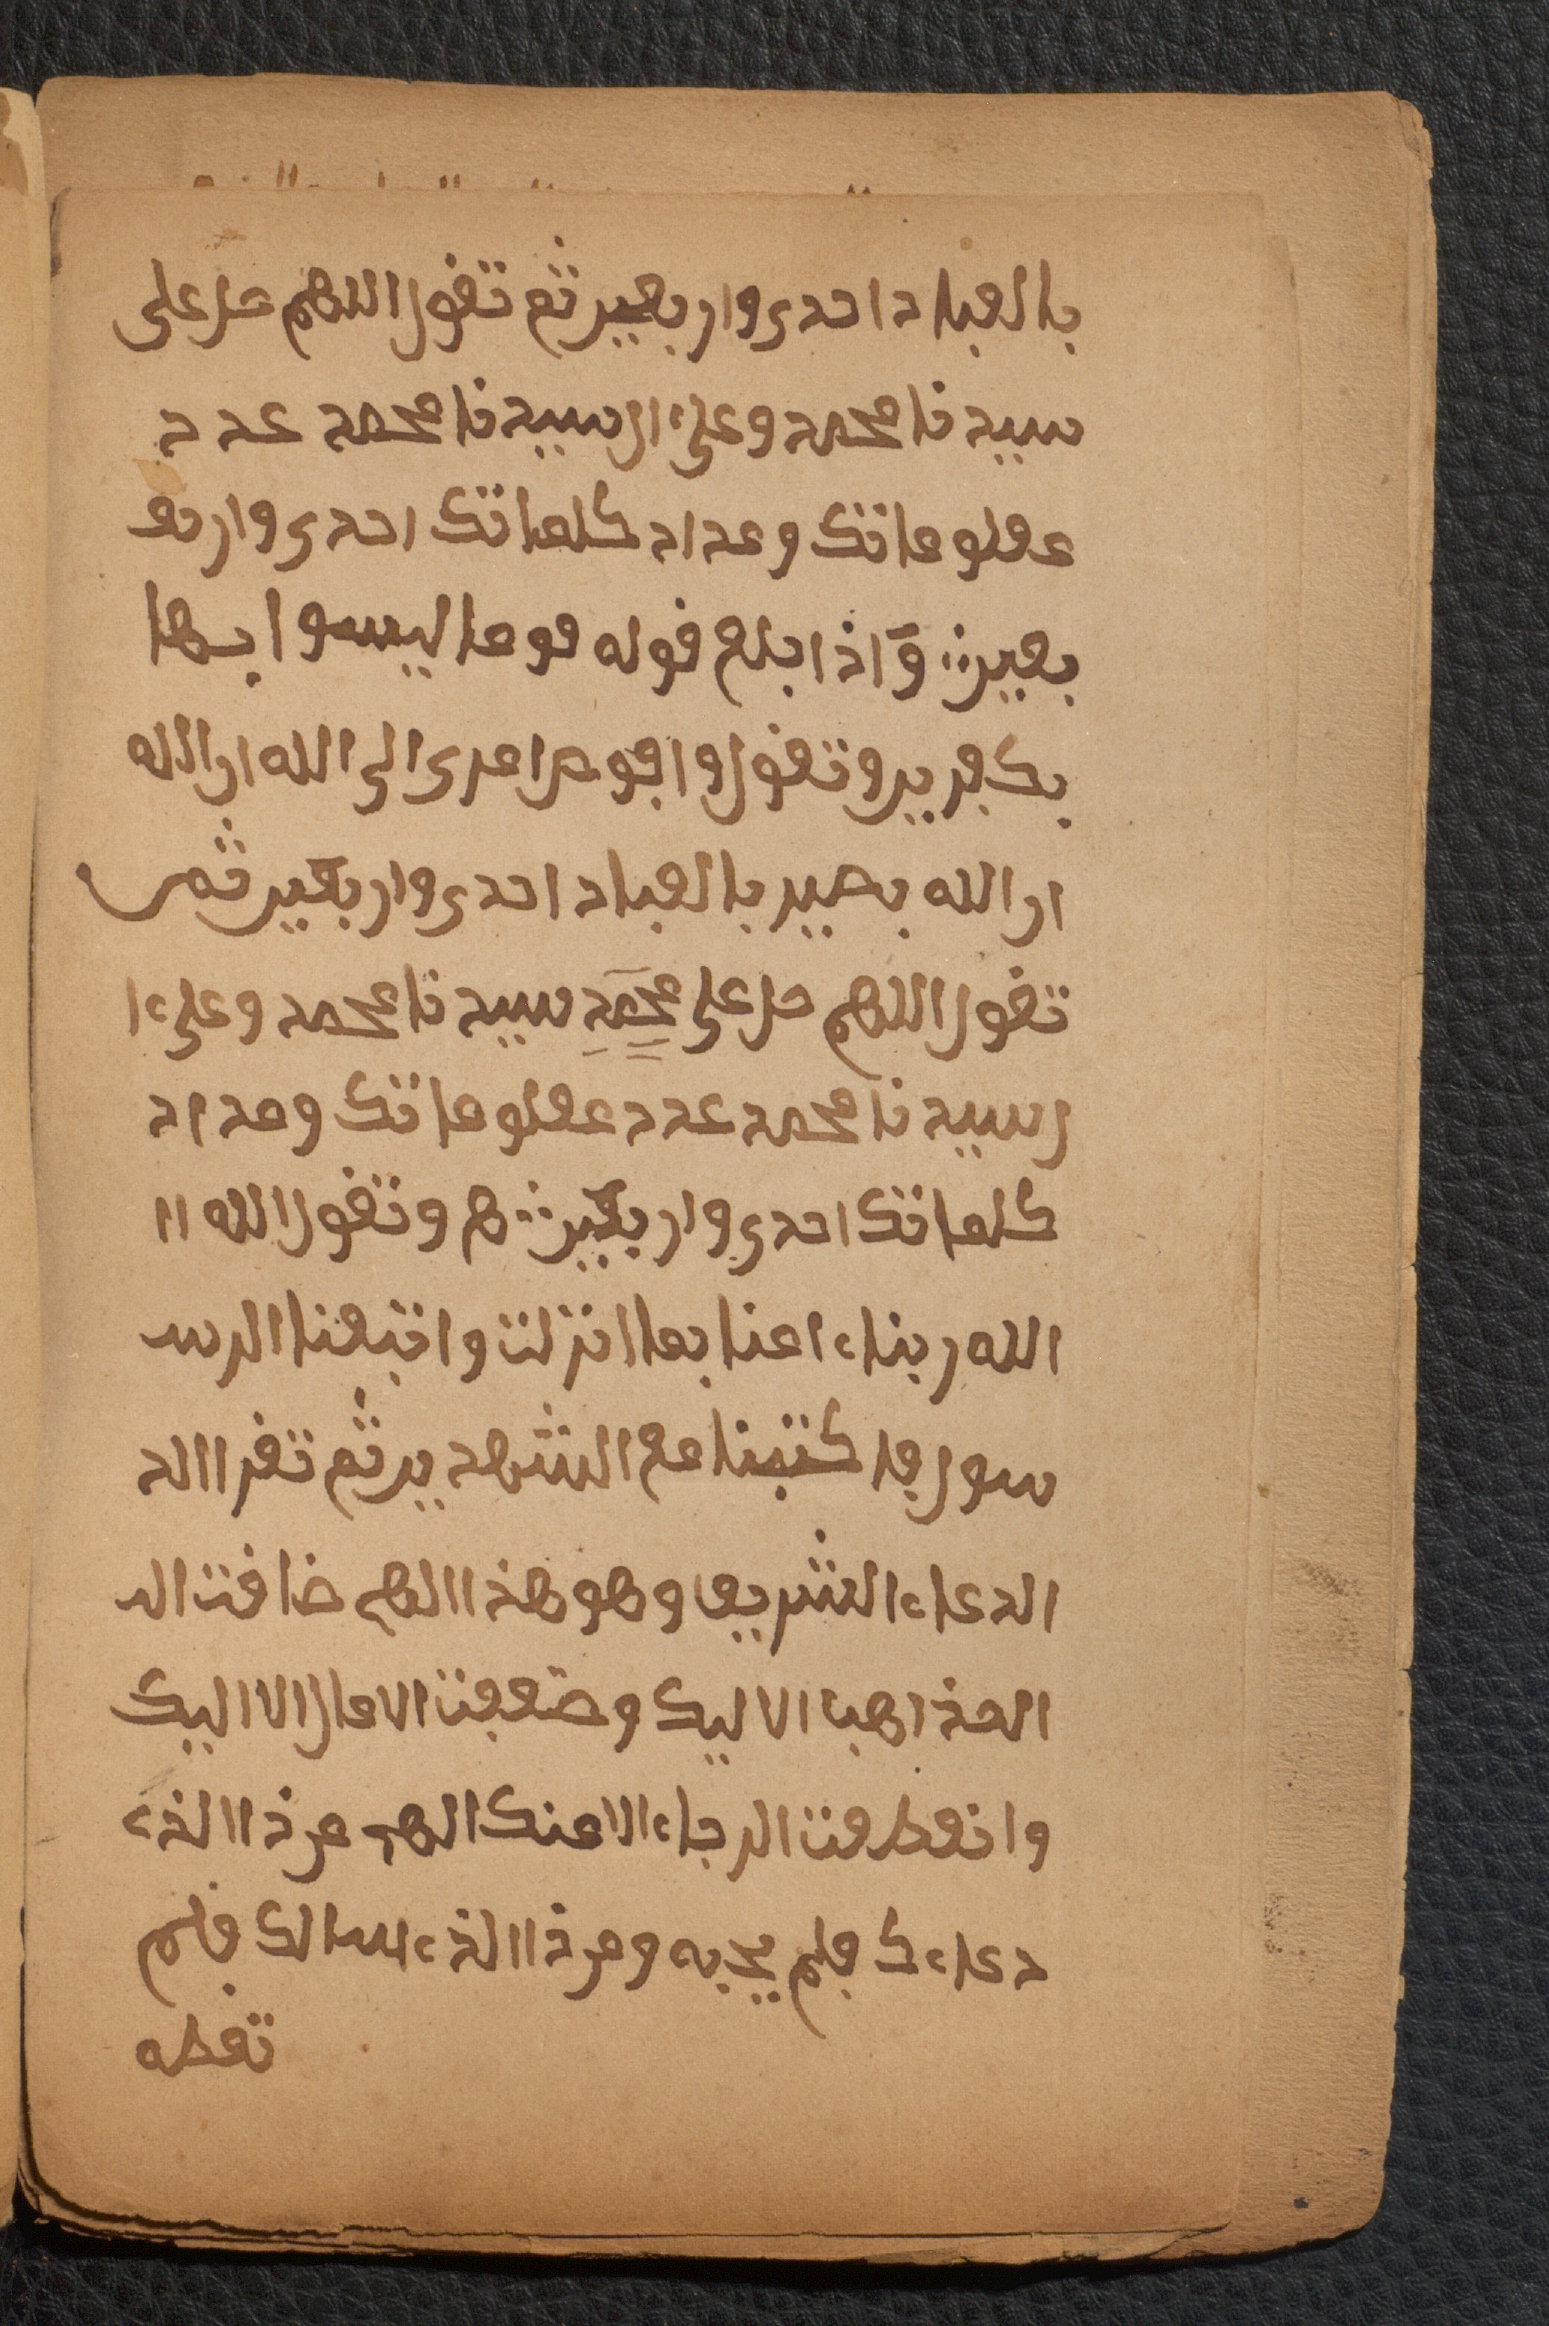 بالعباد احدى واربعين ثم تقول اللهم صل على
سيدنا محمد وعلىءال سيدنا محمد عدد
معلوماتك وعداد كلماتك احدى واربع
بعين ۞ واذا بلغ قوله قوما ليسوا بها
بكفرين وتقول وافوض امرى الى الله ان الله
ان الله بصير بالعباد احدى واربعين ثم
تقول اللهم صل على محمد سيدنا محمد وعلىءا
ل سيدنا محمد عدد معلوماتك وعداد
كلماتك احدى واربعين ۞ هم وتقول الله اا
الله ربناءامنا بما انزلت واتبعنا الرس
سول فاكتبنا مع الشهدين ثم تقراالد
الدعاء الشريف وهو هذا الهم ضاقت الم
المذاهب الا ليك وضعيفت الامال الا اليك
وانقطعت الرجاء الا منك الهم من ذا الذء
دعاءك فلم يجبه ومن ذا الذء اسالك فلم
تعطه